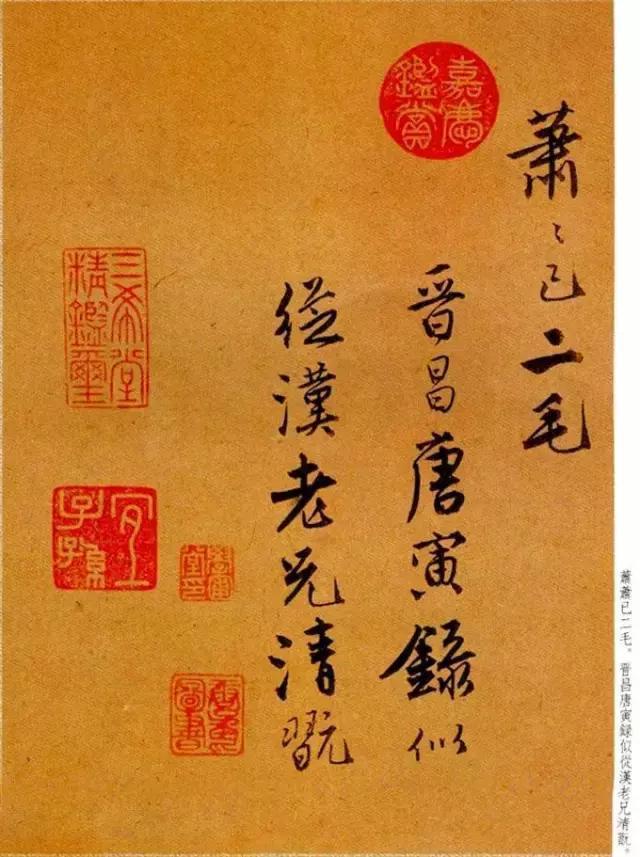 嘉慶鑑賞
蕭〻已二毛
晋昌唐寅録似
從漢老兄清翫
三希堂精鑑璽
宜子孫
蕭蕭已二毛。晉昌唐寅録似從漢老兄清翫。